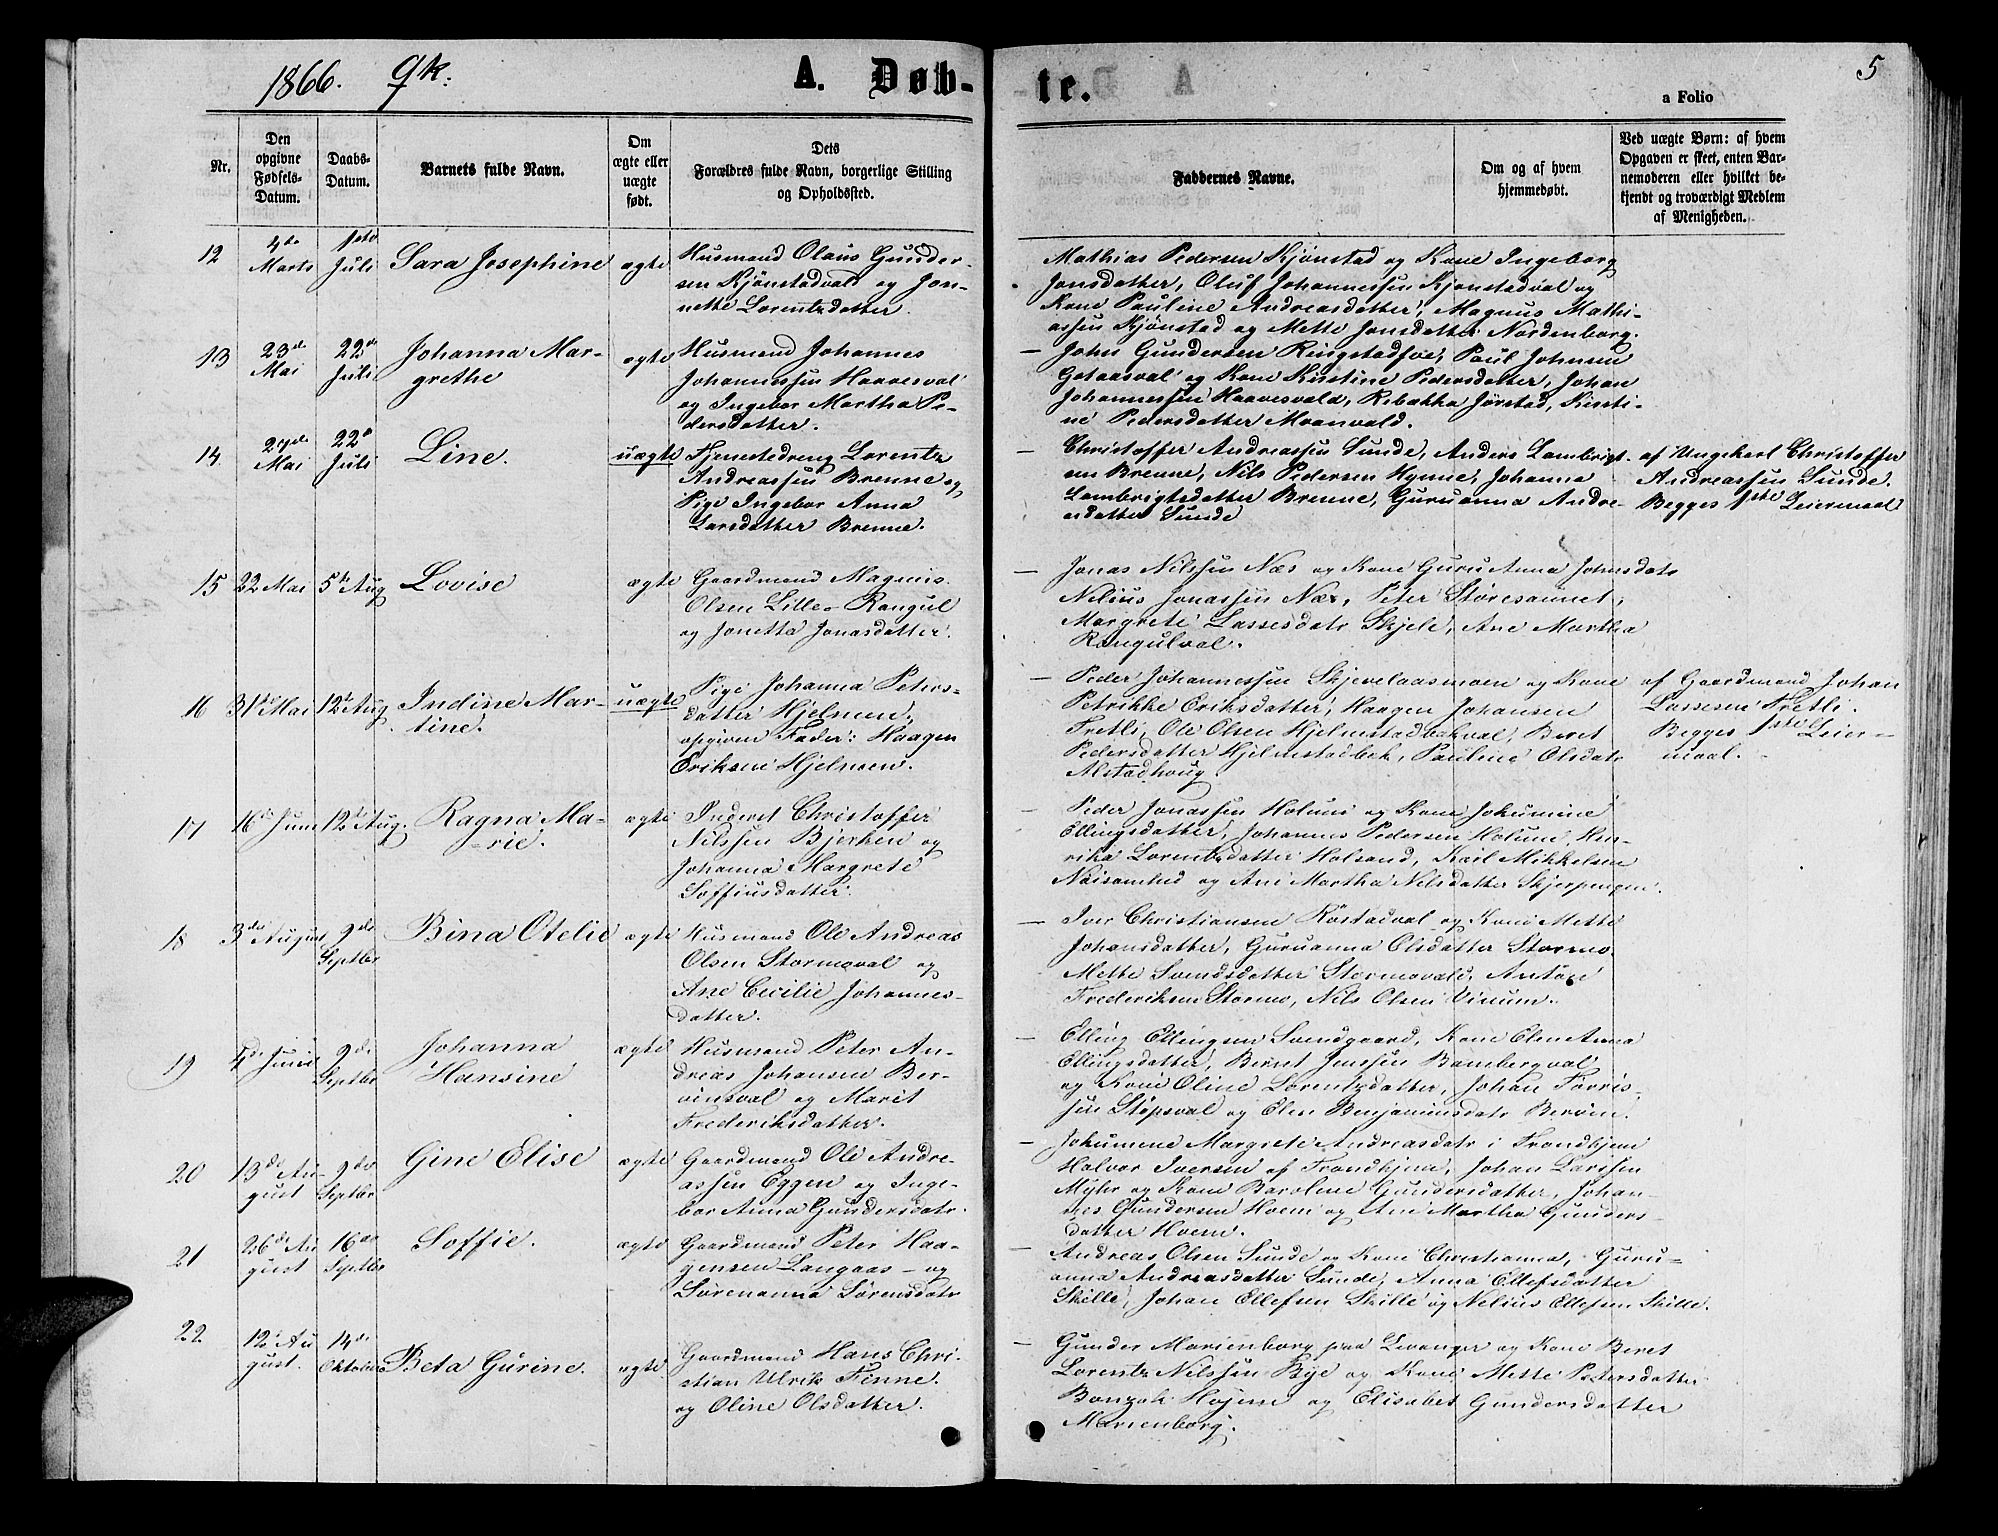 1866. qk. A. Døb-
te.
5
a Folio
Nr.
Den
opgivne
Fødsels-
Datum.
Daabs-
Datum.
Barnets fulde Navn.
Om
ægte eller
uægte
født.
Dets
Forældres fulde Navn, borgerlige Stilling
og Opholdssted.
Faddernes Navne.
Om og af hvem
hjemmedøbt.
Ved uægte Børn: af hvem
Opgaven er skeet, enten Bar-
nemoderen eller hvilket be-
kjendt og troværdigt Medlem
af Menigheden.
12
4de
Marts
1ste
Juli
Sara Josephine
ægte
Husmand Olaus Gunder-
sen Kjønstadvald og Jon-
nette Lorentzdatter.
Mathias Pedersen Kjønstad og Kone Ingeborg
Jonsdatter, Oluf Johannessen Kjønstadval og
Kone Pauline Andreasdatter, Magnus Mathi-
assen Kjønstad og Mette Jonsdatter Nordenborg.
13
23de
Mai
22de
Juli
Johanna Mar-
grethe
ægte
Husmand Johannes
Johannessen Haavesval
og Ingebor Martha Pe-
dersdatter.
– John Gundersen Ringstad Paul Johnsen
Gotaasval og Kone Kirstine Pedersdatter, Johan
Johannessen Haavesvald, Rebækka Jørstad, Kirsti-
ne Pedersdatter Moanvald.
14
27de
Mai
22de
Juli
Line.
uægte
Tjenestedreng Lorentz
Andreassen Brenne og
Pige Ingebor Anna
Larsdatter Brenne.
– Christoffer Andreassen Sunde, Anders Lambrigt-
sen Brenne, Nils Pedersen Hynne, Johanna
Lambrigtsdatter Brenne, Guruanna Andre-
asdatter Sunde
af Ungekarl Christoffer
Andreassen Sunde.
Begges 1ste Leiermaal
15
22 Mai
5te Aug
Lovise
ægte
Gaardmand Magnus
Olsen Lille-Rangul
og Jonetta Jonasdatter.
– Jonas Nilssen Næs og Kone Guru Anna Johnsdatr
Nelius Jonassen Næs, Peter Støresaunet,
Margrete Lassesdatr Skjele, Ane Martha
Rangulval.
16
31te Mai
12te Aug
Indine Mar-
tine.
uægte
Pige Johanna Peters-
datter Hjelmen,
opgiven Fader: Haagen
Eriksen Hjelmen.
– Peder Johannessen Skjevelaasmoen og Kone
Petrikke Eriksdatter, Haagen Johansen
Fretli, Ole Olsen Hjelmstadbakval, Beret
Pedersdatter Hjelmstadbak, Pauline Olsdatr
Alstadhoug
af Gaardmand Johan
Lassesen Fretli.
Begges 1ste Leier-
maal.
17
16de Juni
12te Aug.
Ragna Ma-
rie.
ægte
Inderst Christoffer
Nilssen Bjerken og
Johanna Margrete
Soffiusdatter.
– Peder Jonassen Holum og Kone Jokumine
Ellingsdatter, Johannes Pedersen Holum, Hen-
rika Lorentzdatter Holsand, Karl Mikkelsen
og Ane Martha Nilsdatter Skjerpengen.
18
3die August
9de
Septbr
Bina Otelie
ægte
Husmand Ole Andreas
Olsen Stormoval og
Ane Cecilie Johannes-
datter.
– Iver Christiansen Røstadval og Kone Mette
Johansdatter, Guruanna Olsdatter Stormo
Mette Svendsdatter Stormovald, Antøn
Frederiksen Stormo, Nils Olsen Vinum.
19
4de Juni
9de
Septbr
Johanna
Hansine
ægte
Husmand Peter An-
dreas Johansen Ber-
vinsval og Marit
Frederiksdatter.
– Elling Ellingsen Svendgaard, Kone Elen Anna
Ellingsdatter, Bernt Jensen Bambergval
og Kone Oline Lorentzdatter, Johan Tørris-
sen Stopsval og Elen Benjaminsdatr Berøin.
20
13de Au-
gust
9de
Septbr
Gine Elise
ægte
Gaardmand Ole Andre-
assen Eggen og Inge-
bor Anna Gundersdatr.
– Johumine Margrete Andreasdatr i Trondhjem
Halvor Iversen af Trondhjem, Johan Larssen
Myhr og Kone Baroline Gundersdatter, Johan-
nes Gundersen Hoem og Ane Martha Gunders-
datter Hoem.
21
26de Au
gust
16de
Septbr
Soffie.
ægte
Gaardmand Peter Haa-
gensen Langaas – og
Sørenanna Sørensdatr
– Andreas Olsen Sunde og Kone Christianna, Guru-
anna Andreasdatter Sunde, Anna Ellefsdatter
Skille, Johan Ellefsen Skille og Nelius Ellefsen Skille.
22
12te Au
gust.
14de
Oktober
Beta Gurine.
ægte
Gaardmand Hans Chri-
stian Ulrik Finne.
og Oline Olsdatter.
– Gunder Marienborg paa Levanger og Kone Beret
Lorentz Nilssen Bye og Kone Mette Pedersdatter
Højem og Elisabet Gundersdatter
Marienborg.